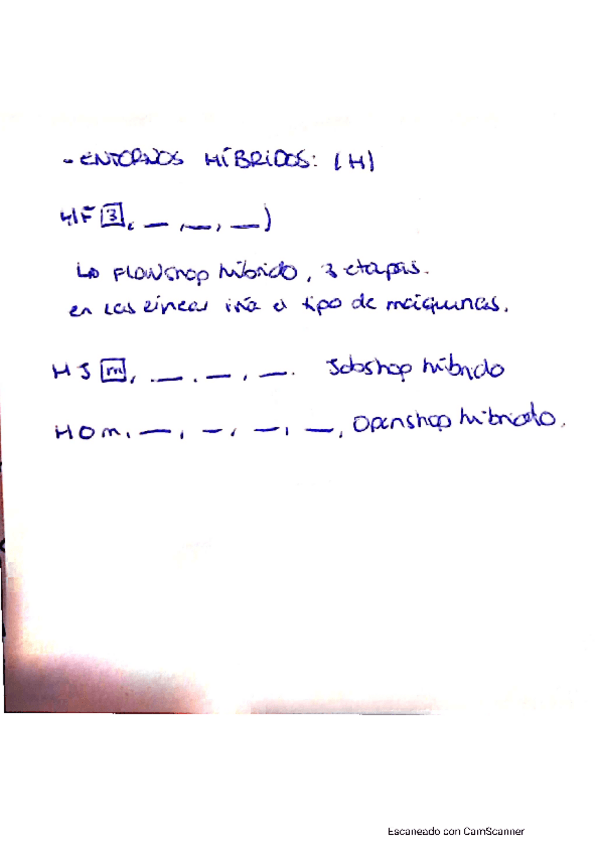 - ENTORNOS HÍBRIDOS: (H)
HF [3], _ , _, _ )
↳ FLOWShop híbrido, 3 etapas.
en las líneas iría el tipo de máquinas.
HJ [m], _ . _ , _. Jobshop híbrido
HOm, _, _, _, _, Openshop híbrido.
Escaneado con CamScanner